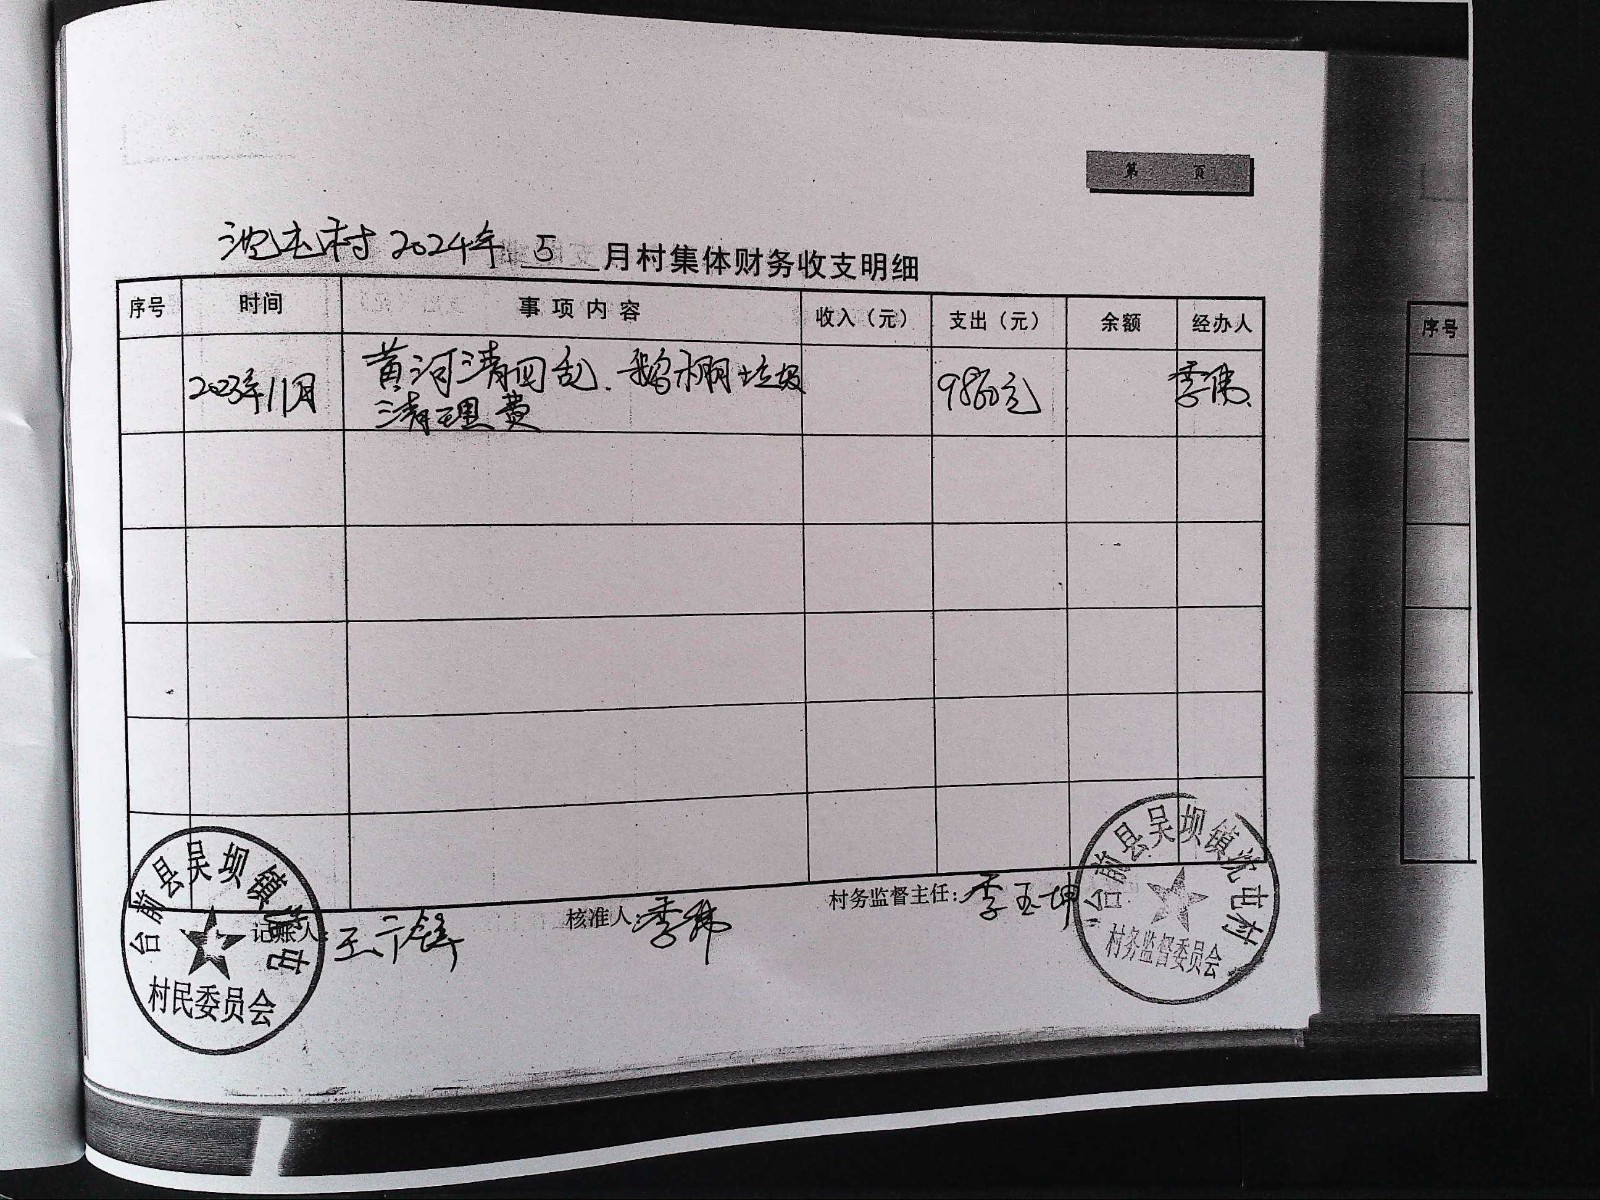 第 页
沈屯村2024年 5 月村集体财务收支明细
序号 时间 事项内容 收入（元） 支出（元） 余额 经办人
2023年11月 黄河清四乱、鹅棚垃圾 9860元 李伟
清理费
记账人: 王 核准人: 李伟 村务监督主任: 李玉坤
台前县吴坝镇沈屯
村民委员会
台前县吴坝镇沈屯村
村务监督委员会
序号